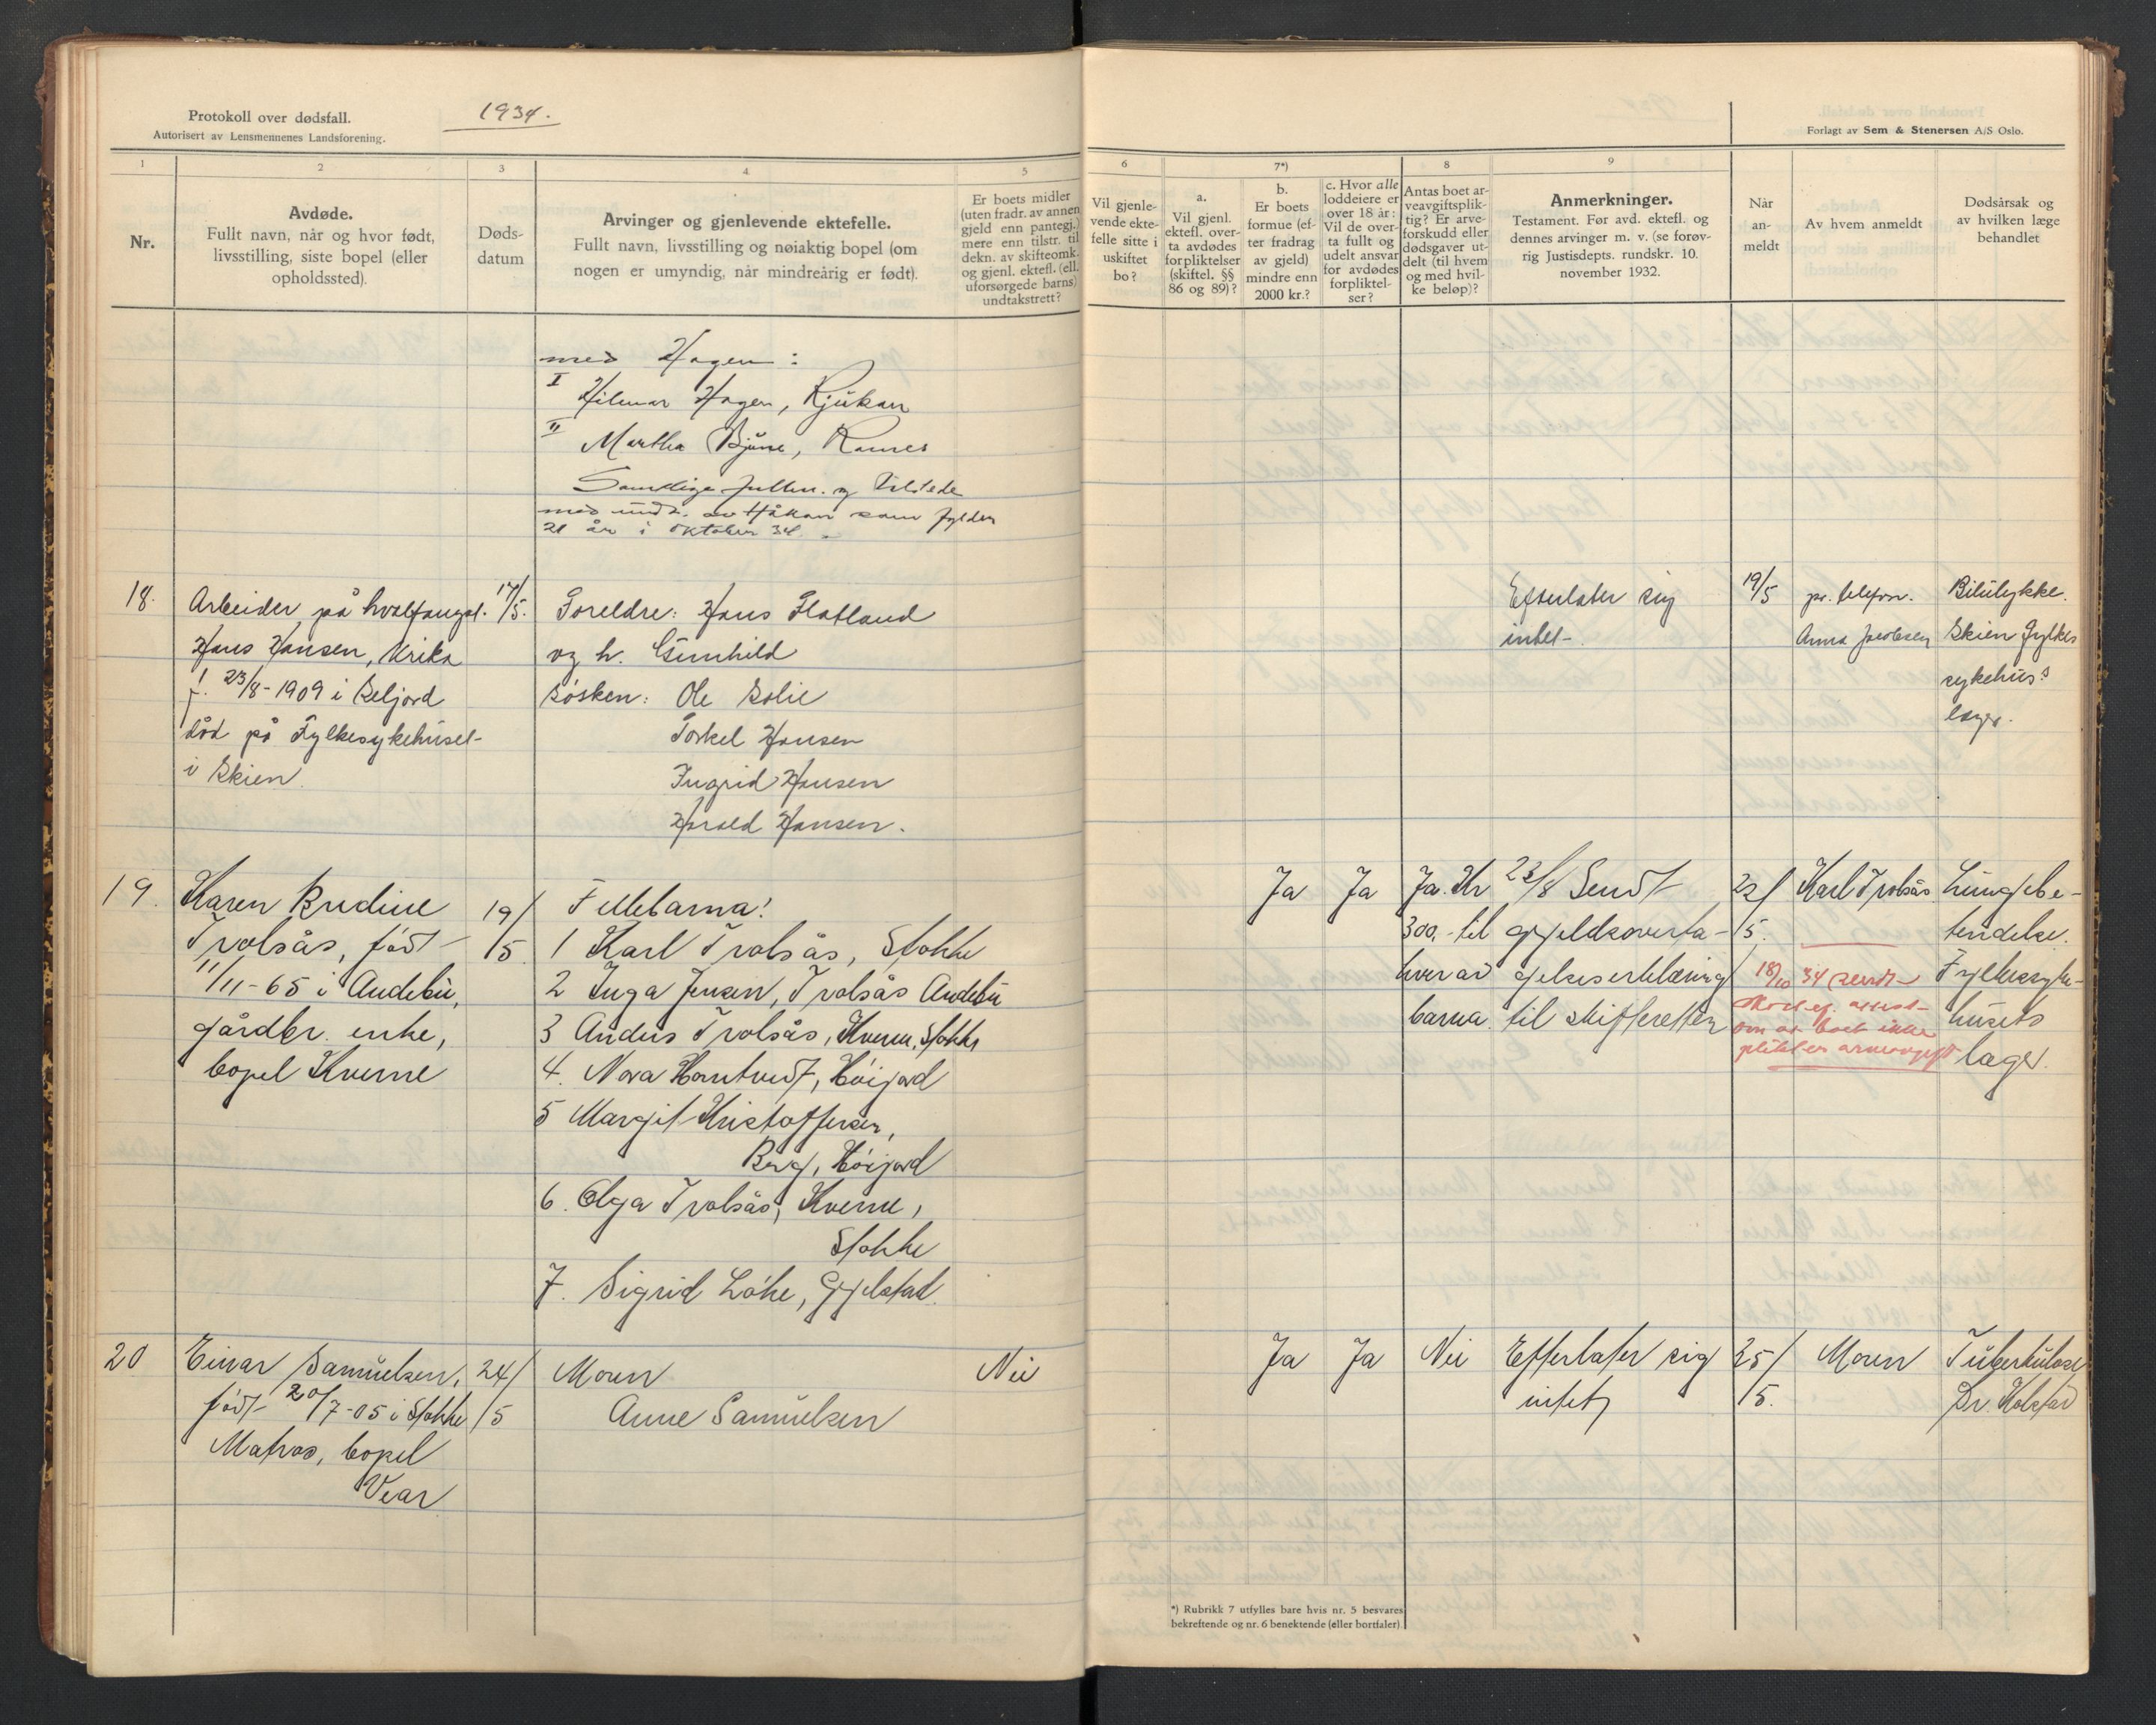 Protokoll over dødsfall.
Autorisert av Lensmennenes Landsforening.
1934.
Forlagt av Sem & Stenersen A/S Oslo.
1
2
3
4
5
6
7*)
8
9
Nr.
Avdøde.
Fullt navn, når og hvor født,
livsstilling, siste bopel (eller
opholdssted).
Døds-
datum
Arvinger og gjenlevende ektefelle.
Fullt navn, livsstilling og nøiaktig bopel (om
nogen er umyndig, når mindreårig er født).
Er boets midler
(uten fradr. av annen
gjeld enn pantegj.)
mere enn tilstr. til
dekn. av skifteomk.
og gjenl. ektef. (ell.
uforsørgede barns)
undtakstrett?
Vil gjenle-
vende ekte-
felle sitte i
uskiftet
bo?
a.
Vil gjenl.
ektefl. over-
ta avdødes
forpliktelser
(skiftel. §§
86 og 89)?
b.
Er boets
formue (ef-
ter fradrag
av gjeld)
mindre enn
2000 kr.?
c. Hvor alle
loddeiere er
over 18 år:
Vil de over-
ta fullt og
udelt ansvar
for avdødes
forpliktel-
ser?
Antas boet ar-
veavgiftsplik-
tig? Er arve-
forskudd eller
dødsgaver ut-
delt (til hvem
og med hvil-
ke beløp)?
Anmerkninger.
Testament. Før avd. ektefl. og
dennes arvinger m. v. (se forøv-
rig Justisdepts. rundskr. 10.
november 1932.
Når
an-
meldt
Av hvem anmeldt
Dødsårsak og
av hvilken læge
behandlet
med Hagen:
I Hilmar Hagen, Rjukan
II Martha Bjune, Ramnes
Samtlige fullm. og tilstede
med undt. av Håkon som fylder
21 år i oktober 34.
18.
Arbeider på hvalfangst.
Hans Hansen, Krika
f. 23/8-1909 i Seljord
död på Fylkesykehuset
i Skien.
17/5.
Foreldre: Hans Flatland
og h. Gunhild
Søsken: Ole Solie
Torkel Hansen
Ingrid Hansen
Harald Hansen.
Efterlater sig
intet.
19/5
pr. telefon.
Anna Jacobsen
Bilulykke.
Skien Fylkes
sykehus's
læge.
19.
Karen Rudine
Trolsås, født
11/11-65 i Andebu,
gårdbr. enke,
bopel Kverne
19/
/5
Fellebarna:
1 Karl Trolsås, Stokke
2 Inga Jensen, Trolsås Andebu
3 Anders Trolsås, Kverne, Stokke
4. Nora Horntvedt, Höijord
5 Margit Kristoffersen,
Berg, Höijord
6. Olga Trolsås, Kverne,
Stokke
7. Sigrid Löke, Gjelstad.
Ja
Ja
Ja. Kr
300,- til
hver av
barna.
23/8 Sendt
gjeldsoverta-
gelseserklæring
til skifteretten
22/
/5.
18/10 34 sendt
om at boet ikke
Karl Trolsås
Lungebe-
tendelse.
Fylkessyke-
husets
læge.
20
Einar Samuelsen,
født 20/7-05 i Stokke
Matros, bopel
Vear
24/
/5
Moren
Anne Samuelsen
Nei
Ja
Ja
Nei
Efterlater sig
intet
25/
/5.
Moren
Tuberkulose
Dr. Holstad
*) Rubrikk 7 utfylles bare hvis nr. 5 besvares
bekreftende og nr. 6 benektende (eller bortfaler).